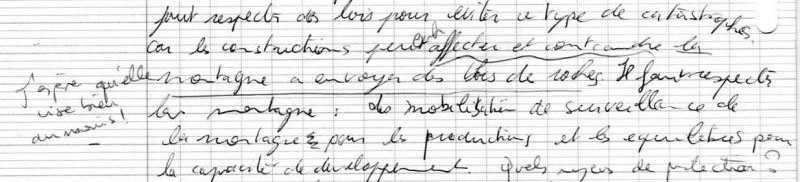 faut respecter des lois pour éviter ce type de catastrophes.
car les constructions peuvent affecter et contraindre les
montagne a envoyer des blocs de roches. Il faut respecter
la montagne : des mobilisation de surveillance de
la montagne pour les productions et les agricultures pour
la capacité de développement. Quels moyens de protection ?
J'espère qu'elle
vise bien
au moins !